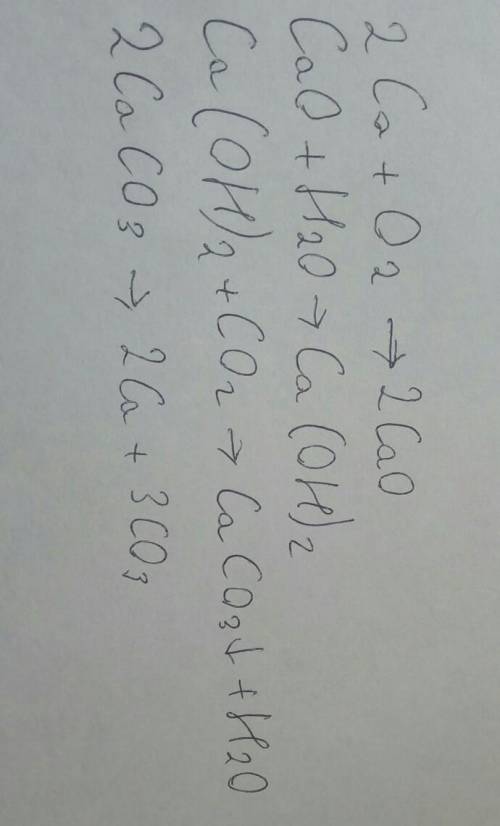 2Ca + O₂ → 2CaO
CaO + H₂O → Ca(OH)₂
Ca(OH)₂ + CO₂ → CaCO₃↓ + H₂O
2CaCO₃ → 2Ca + 3CO₃